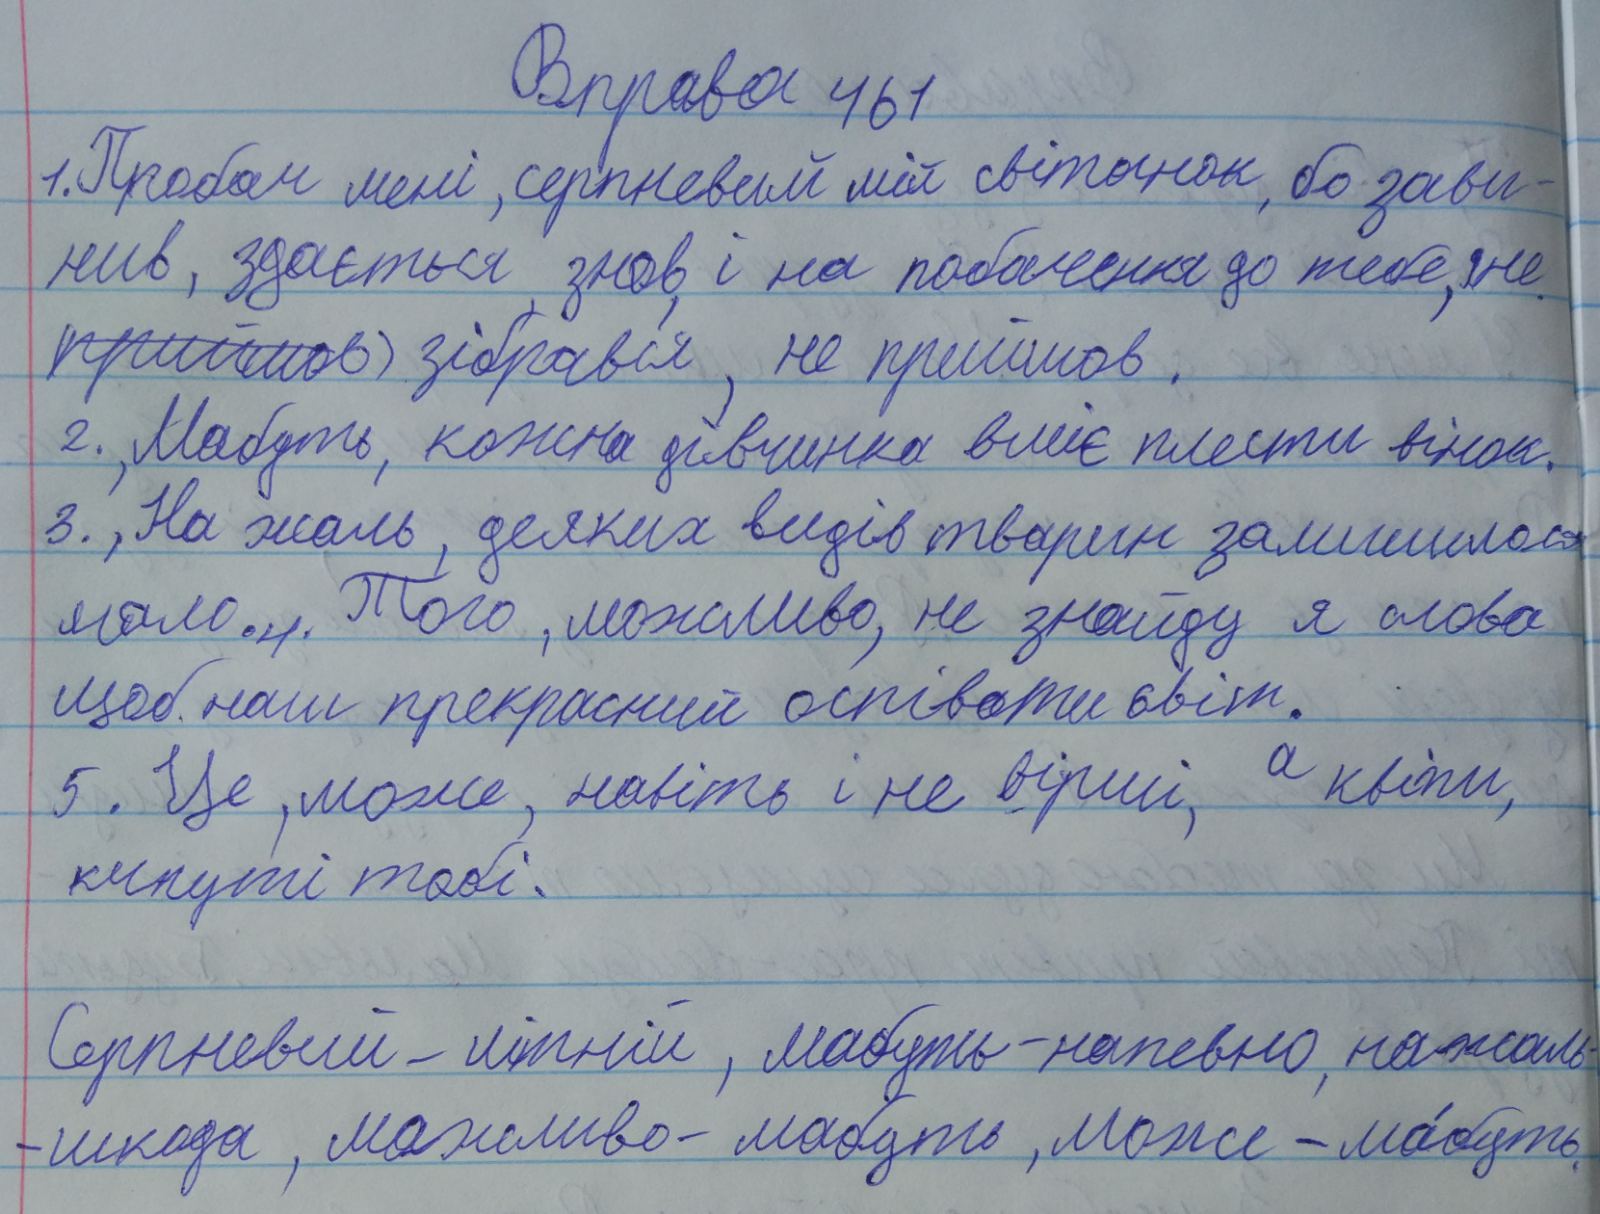 Вправа 461
1. Пробач мені, серпневий мій світанок, бо зави-
нив, здається, знов, і на побачення до тебе, я не
(прийшов) зібрався, не прийшов.
2. , Мабуть, кожна дівчинка вміє плести вінок.
3. , На жаль, деяких видів тварин залишилося
мало. 4. Того, можливо, не знайду я слова
щоб наш прекрасний оспівати світ.
5. Це, може, навіть і не вірші, а квіти,
кинуті тобі.
Серпневий - літній, мабуть - напевно, на жаль-
- шкода, можливо - мабуть, може - ма́буть.